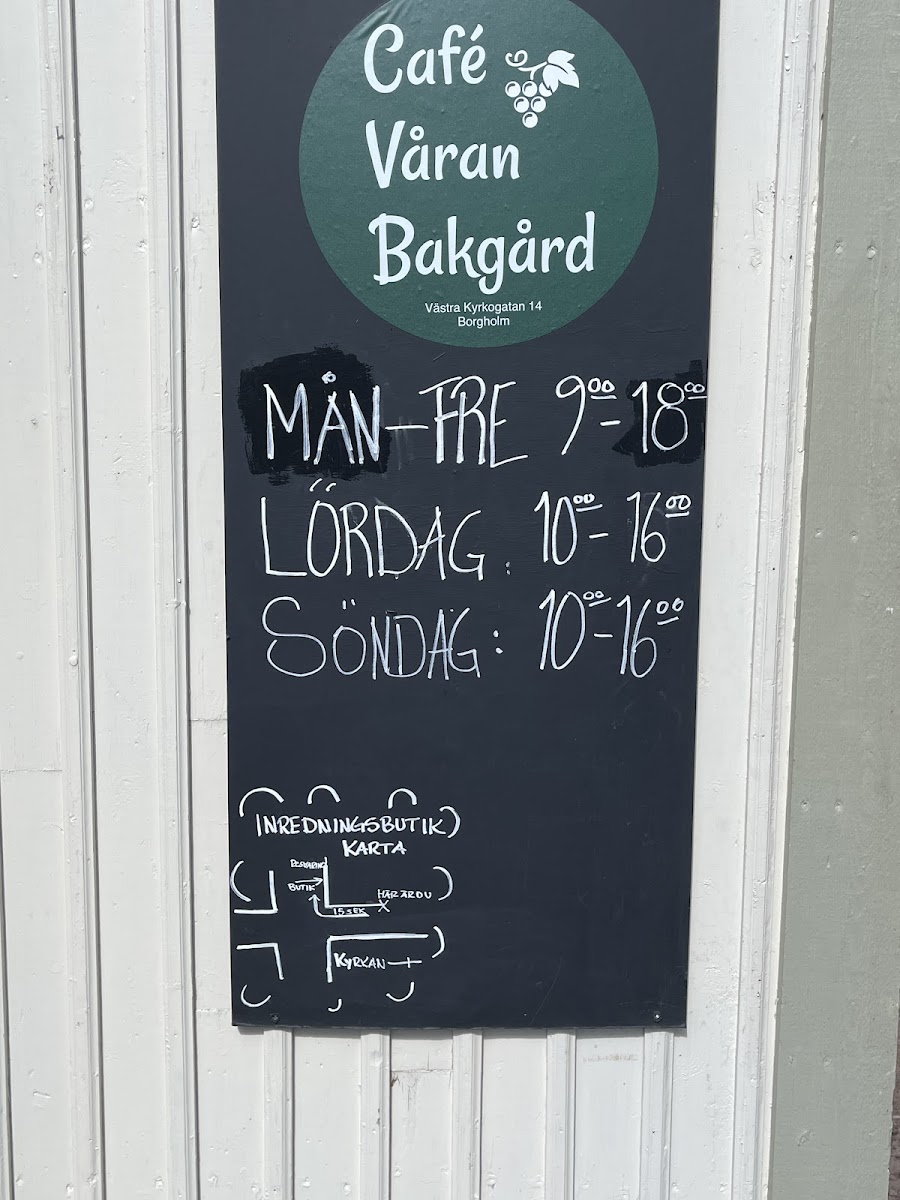 Café
Våran
Bakgård
Västra Kyrkogatan 14
Borgholm
MÅN-FRE 9⁰⁰-18⁰⁰
LÖRDAG: 10⁰⁰-16⁰⁰
SÖNDAG: 10⁰⁰-16⁰⁰
INREDNINGSBUTIK
KARTA
BUTIK
HÄR ÄR DU
X
15 SEK
KYRKAN